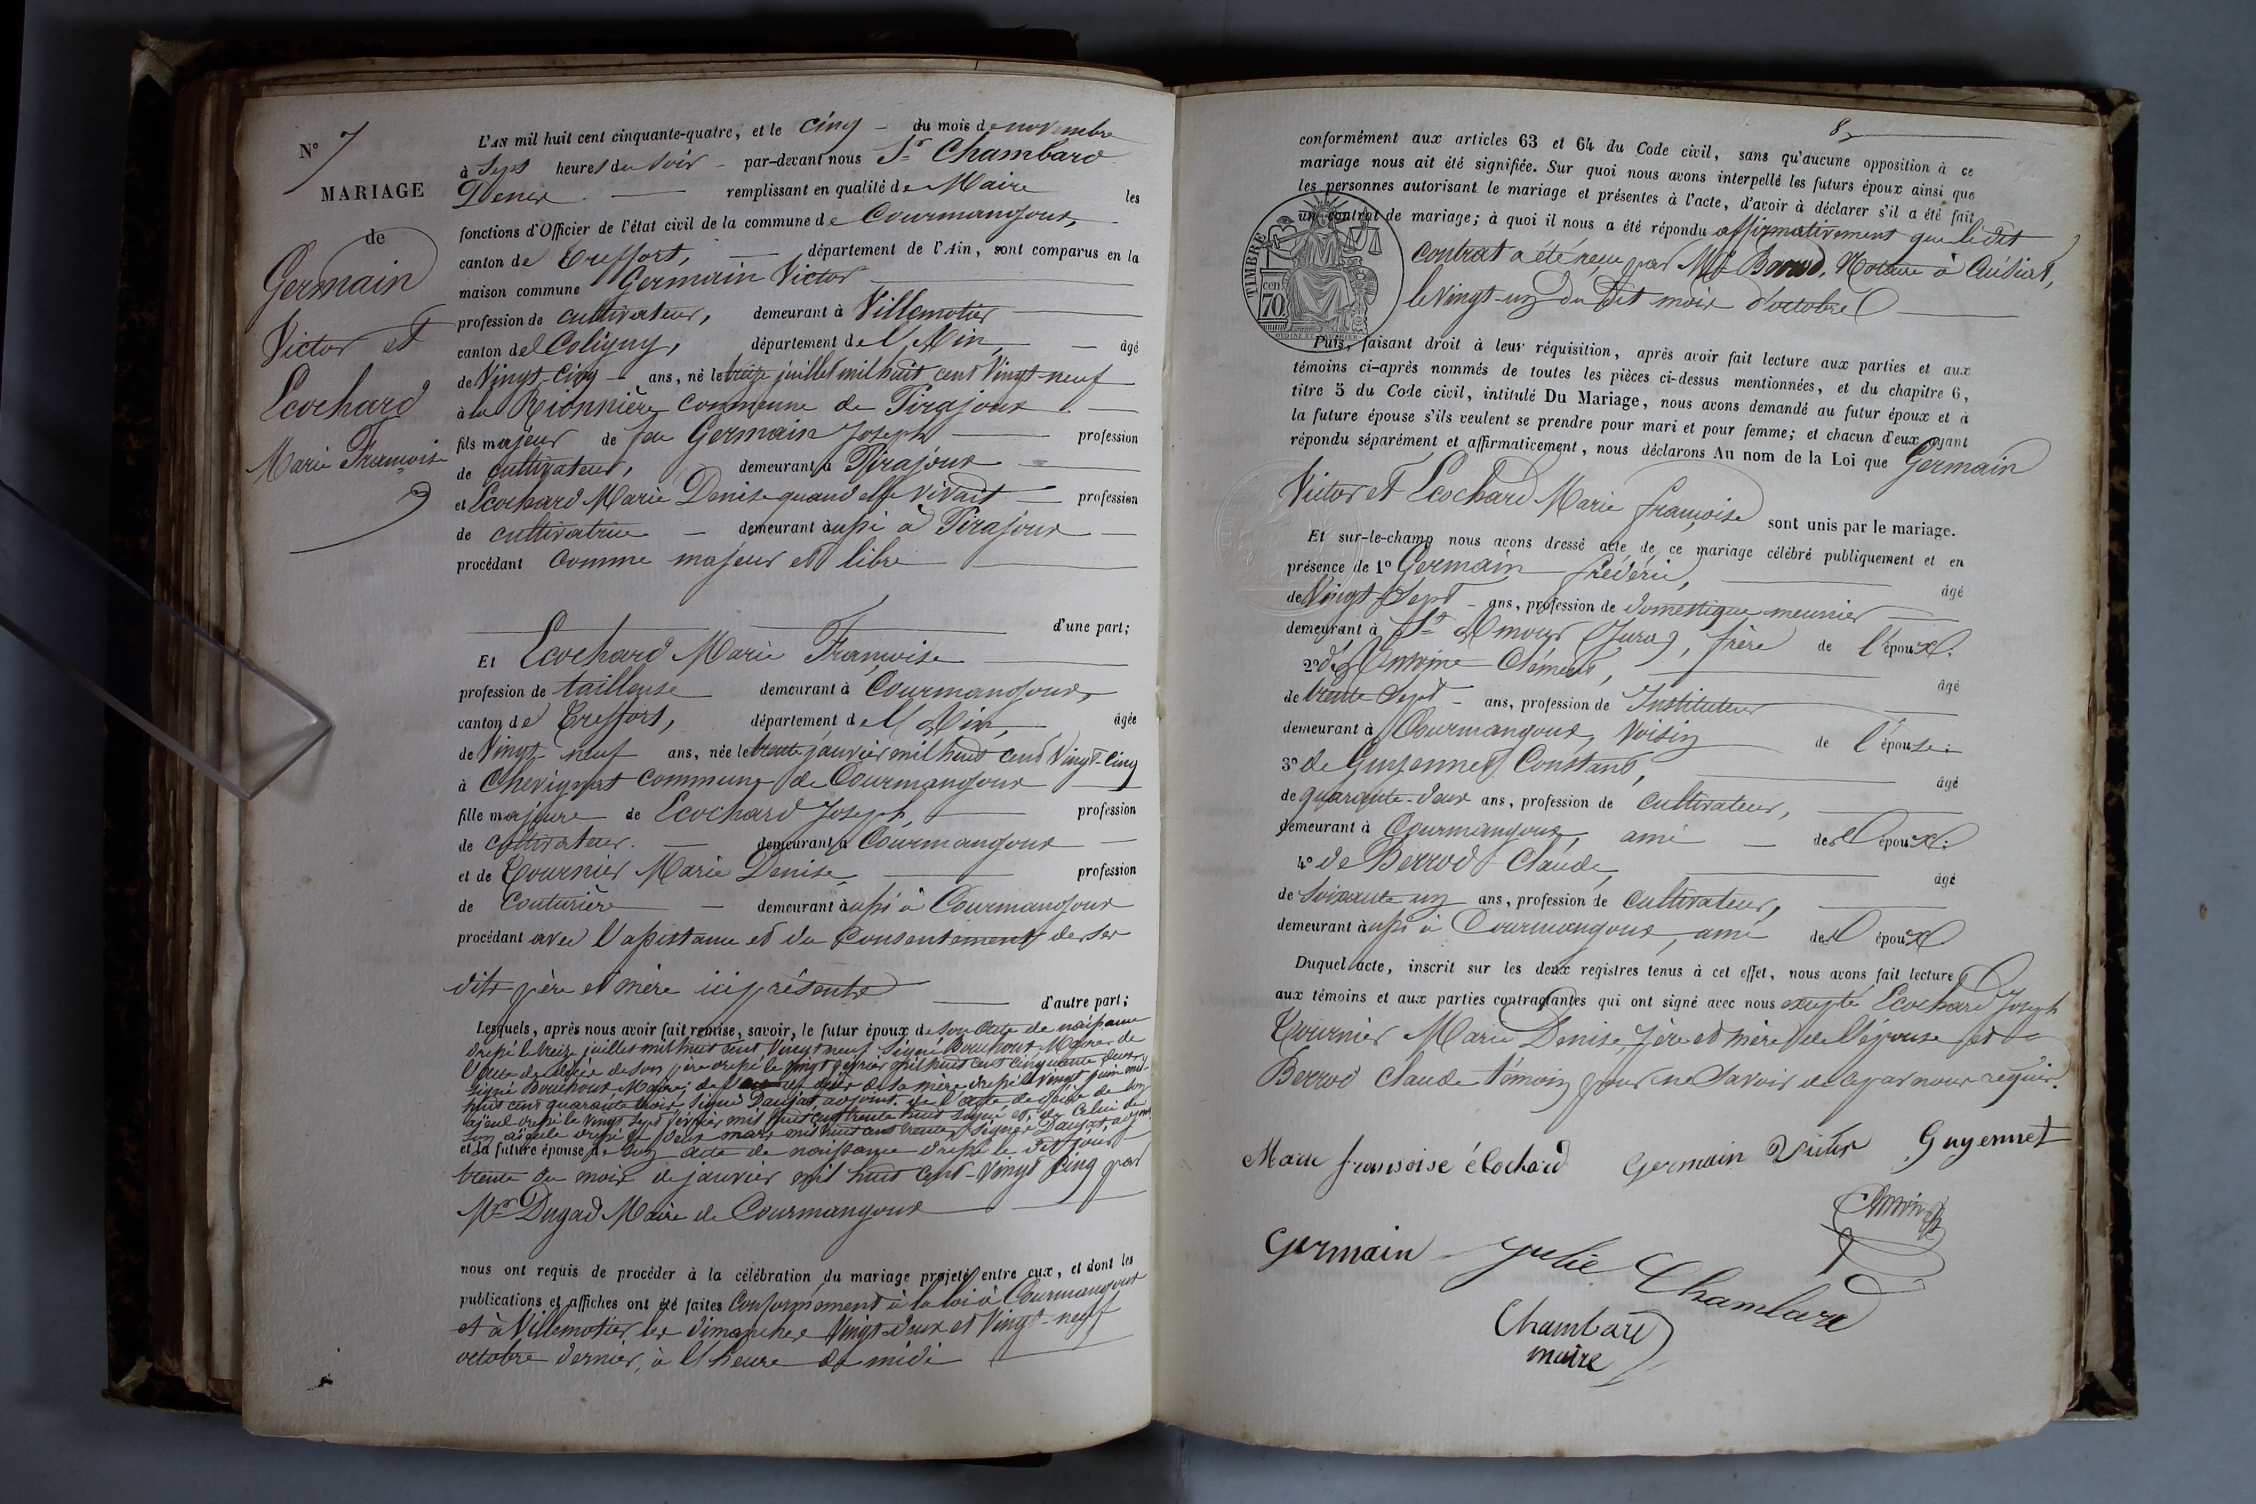 N° 7
MARIAGE
de
Germain
Victor et
Ecochard
Marie Françoise
L'AN mil huit cent cinquante-quatre, et le cinq du mois de novembre
à Sept heures du soir par-devant nous Sr Chambard
Denis remplissant en qualité de Maire les
fonctions d'Officier de l'état civil de la commune de Courmangoux,
canton de Treffort, département de l'Ain, sont comparus en la
maison commune Germain Victor
profession de cultivateur, demeurant à Villemotier
canton de Coligny, département de l'Ain, âgé
de Vingt-cinq ans, né le treize juillet mil huit cent Vingt-neuf
à la Rionnière commune de Pirajoux
fils majeur de feu Germain Joseph profession
de cultivateur, demeurant à Pirajoux
et Ecochard Marie Denise quand elle vivait profession
de cultivatrice demeurant aussi à Pirajoux
procédant comme majeur et libre
d'une part;
Et Ecochard Marie Françoise
profession de tailleuse demeurant à Courmangoux,
canton de Treffort, département de l'Ain, âgée
de Vingt-neuf ans, née le trente janvier mil huit cent Vingt-cinq
à Chevignat commune de Courmangoux
fille majeure de Ecochard Joseph, profession
de cultivateur. demeurant à Courmangoux
et de Tournier Marie Denise, profession
de Couturière demeurant aussi à Courmangoux
procédant avec l'assistance et du consentement de ses
dits père et mère ici présents
d'autre part;
Lesquels, après nous avoir fait remise, savoir, le futur époux de son acte de naissance
dressé le treize juillet mil huit cent Vingt neuf Signé Bouchoux, Maire; de
l'acte de décès de son père dressé le vingt février mil huit cent cinquante deux,
signé Bouchoux Maire; de de sa mère dressé le vingt juin mil
huit cent quarante trois, signé Daujat, adjoint, de l'acte de décès de son
aïeul dressé le Vingt sept février mil huit cent trente huit signé et de celui de
son aïeule dressé le deux mars mil huit cent trente, signé Daujat, adjoint
et la future épouse de son acte de naissance dressé le dit jour
trente du mois de janvier mil huit cent-Vingt cinq par
Mr Dugad Maire de Courmangoux
nous ont requis de procéder à la célébration du mariage projeté entre eux, et dont les
publications et affiches ont été faites Conformément à la loi à Courmangoux
et à Villemotier les dimanches Vingt-deux et Vingt-neuf
octobre dernier, à l'heure de midi
8
conformément aux articles 63 et 64 du Code civil, sans qu'aucune opposition à ce
mariage nous ait été signifiée. Sur quoi nous avons interpellé les futurs époux ainsi que
les personnes autorisant le mariage et présentes à l'acte, d'avoir à déclarer s'il a été fait
un contrat de mariage; à quoi il nous a été répondu affirmativement que ledit
contrat a été reçu par Me Notaire à Cuisiat,
le Vingt-un du dit mois d'octobre
TIMBRE
cen
70
Puis, faisant droit à leur réquisition, après avoir fait lecture aux parties et aux
témoins ci-après nommés de toutes les pièces ci-dessus mentionnées, et du chapitre 6,
titre 5 du Code civil, intitulé Du Mariage, nous avons demandé au futur époux et à
la future épouse s'ils veulent se prendre pour mari et pour femme; et chacun d'eux ayant
répondu séparément et affirmativement, nous déclarons Au nom de la Loi que Germain
Victor et Ecochard Marie françoise sont unis par le mariage.
Et sur-le-champ nous avons dressé acte de ce mariage célébré publiquement et en
présence de 1° Germain frédéric, âgé
de Vingt-Sept ans, profession de domestique meunier
demeurant à St Amour (Jura), frère de l'époux.
2° de Antoine Clément, âgé
de trente Sept ans, profession de Instituteur
demeurant à Courmangoux, Voisin de l'épouse.
3° de Guyennet Constant, âgé
de quarante-deux ans, profession de Cultivateur,
demeurant à Courmangoux, ami de l'époux.
4° de Berrod Claude, âgé
de soixante un ans, profession de Cultivateur,
demeurant aussi à Courmangoux, ami de l'époux
Duquel acte, inscrit sur les deux registres tenus à cet effet, nous avons fait lecture
aux témoins et aux parties contractantes qui ont signé avec nous excepté Ecochard Joseph
Tournier Marie Denise, père et mère de l'épouse et
Berrod Claude témoin pour ne savoir de ce par nous requis.
Marie françoise écochard Germain Victor Guyennet
Germain Julie Chambard
Chambard
maire